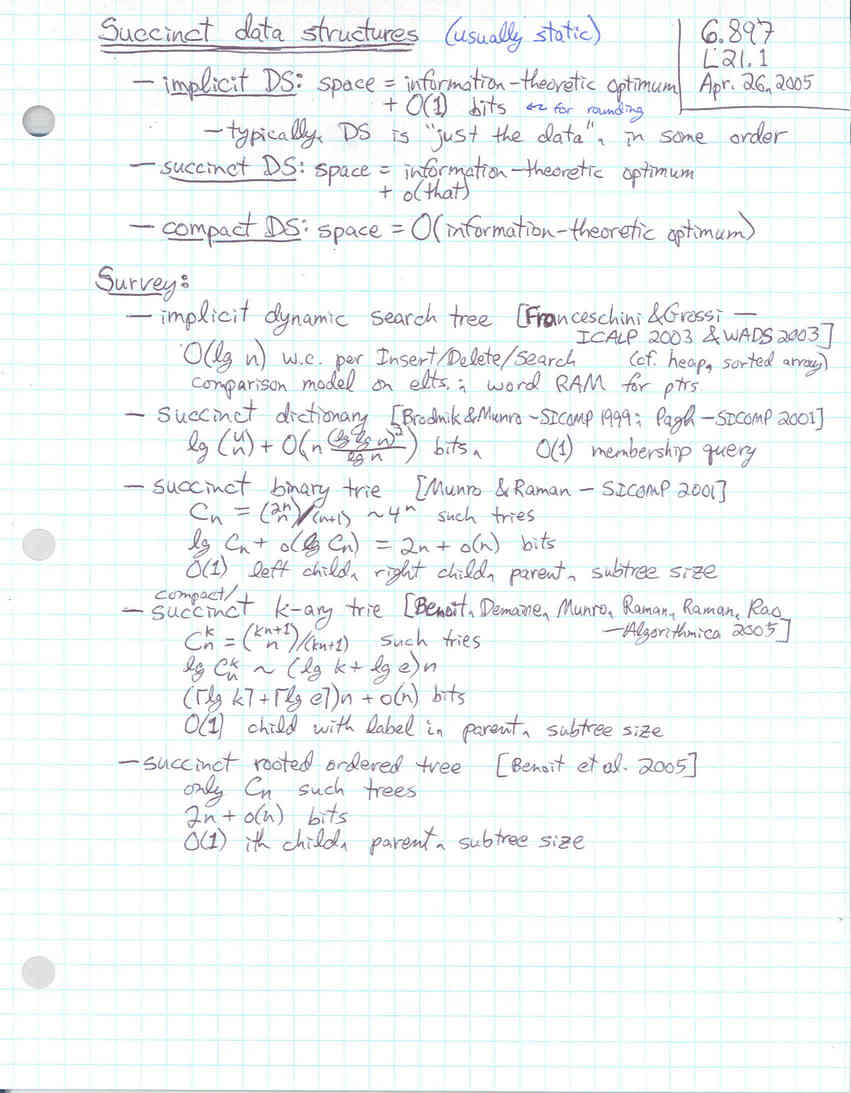 Succinct data structures (usually static)
6.897
L21.1
Apr. 26, 2005
— implicit DS: space = information-theoretic optimum
+ O(1) bits ← for rounding
— typically, DS is "just the data", in some order
— succinct DS: space = information-theoretic optimum
+ o(that)
— compact DS: space = O(information-theoretic optimum)
Survey:
— implicit dynamic search tree [Franceschini & Grossi —
ICALP 2003 & WADS 2003]
O(lg n) w.c. per Insert/Delete/Search (cf. heap, sorted array)
comparison model on elts.; word RAM for ptrs.
— succinct dictionary [Brodnik & Munro - SICOMP 1999; Pagh - SICOMP 2001]
lg (u n) + O(n (lg lg n)²/lg n) bits, O(1) membership query
— succinct binary trie [Munro & Raman - SICOMP 2001]
Cₙ = (2n n)/(n+1) ~ 4ⁿ such tries
lg Cₙ + o(lg Cₙ) = 2n + o(n) bits
O(1) left child, right child, parent, subtree size
compact/
— succinct k-ary trie [Benoit, Demaine, Munro, Raman, Raman, Rao
— Algorithmica 2005]
Cₙᵏ = (kn+1 n)/(kn+1) such tries
lg Cₙᵏ ~ (lg k + lg e)n
(⌈lg k⌉ + ⌈lg e⌉)n + o(n) bits
O(1) child with label i, parent, subtree size
— succinct rooted ordered tree [Benoit et al. 2005]
only Cₙ such trees
2n + o(n) bits
O(1) ith child, parent, subtree size